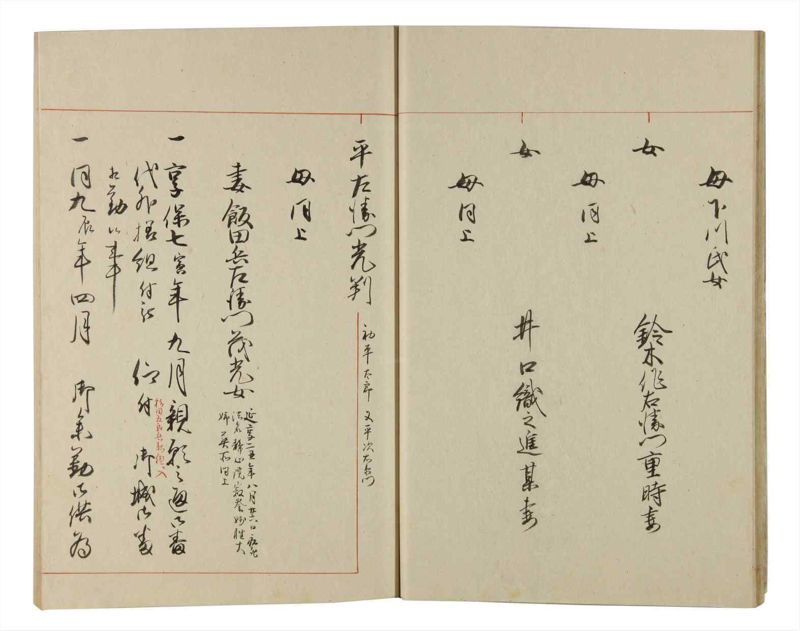 母下川氏女
女
鈴木作右衛門重時妻
母同上
女
井口織之進某妻
母同上
平左衛門光判
初平太郎 又平次右衛門
母同上
妻飯田兵左衛門茂光女
延享二丑年八月廿六日
姉 同上
一 享保七寅年九月親願之通御番
代外様組付被 仰付 御城御番
相勤候事
一 同九辰年四月 御参勤御供